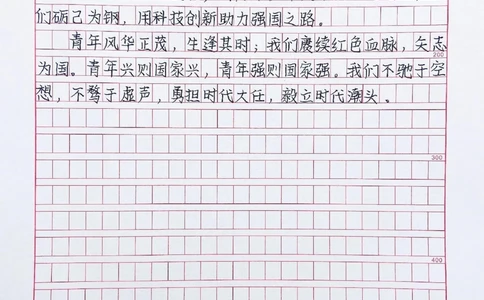 们砺己为钢，用科技创新助力强国之路。
青年风华正茂，生逢其时；我们赓续红色血脉，矢志
200
为国。青年兴则国家兴，青年强则国家强。我们不驰于空
想，不骛于虚声，勇担时代大任，毅立时代潮头。
300
400